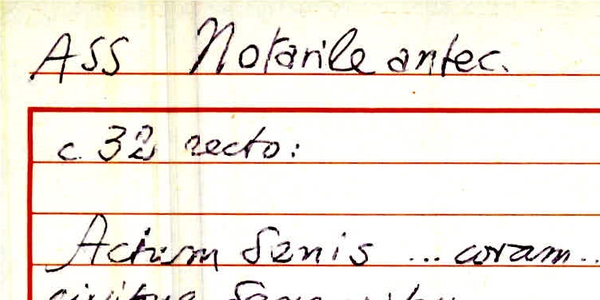 ASS Notarile antec.
c. 32 recto:
Actum Senis ... coram ..